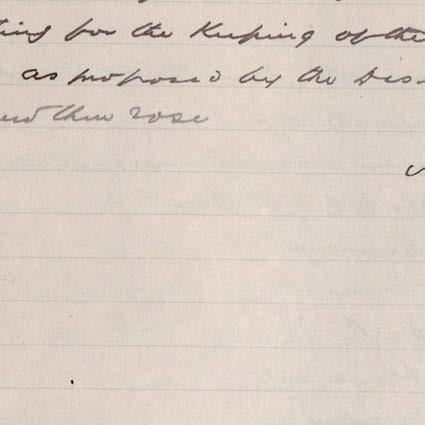 ting for the Keeping of the
as proposed by the Dis-
and then rose